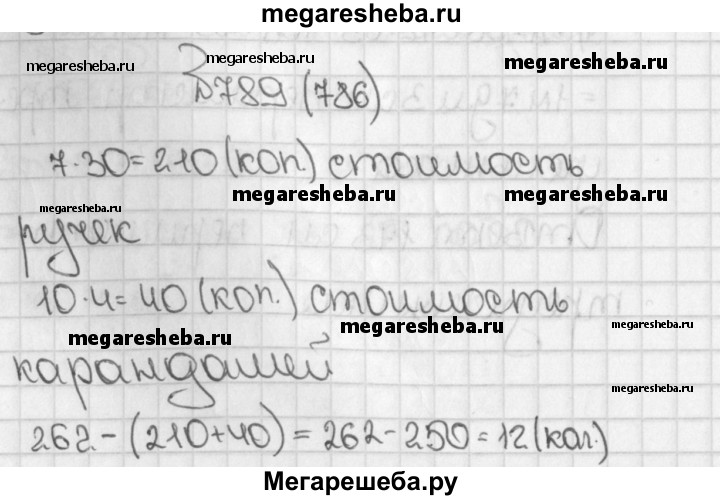 megaresheba.ru
megaresheba.ru megaresheba.ru megaresheba.ru
789 (786)
7·30=210 (коп.) стоимость
megaresheba.ru megaresheba.ru megaresheba.ru
ручек
10·4=40 (коп.) стоимость
megaresheba.ru megaresheba.ru megaresheba.ru
карандашей
megaresheba.ru
262-(210+40)=262-250=12(коп.)
Мегарешеба.ру